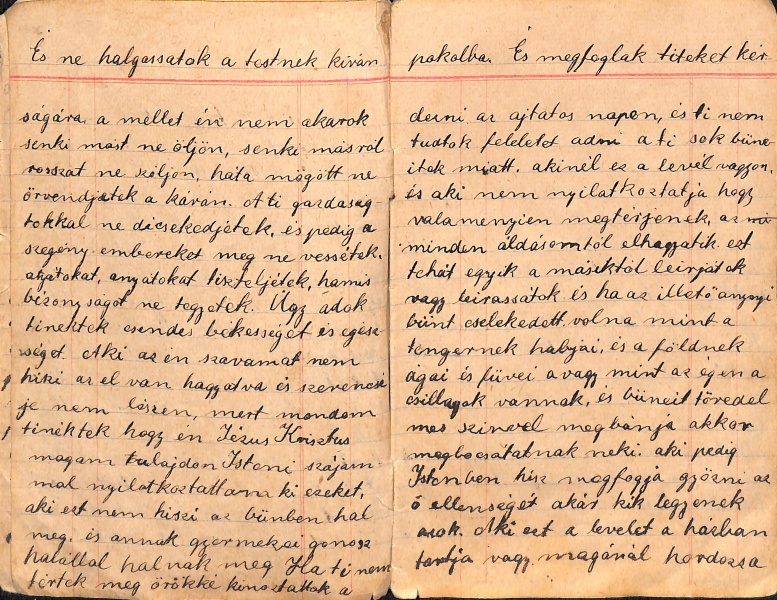 És ne halgassatok a testnek kíván
ságára, a mellet én nem akarok
senki mást ne öljön, senki másról
rosszat ne szóljon, hata mögött ne
örvendjetek a kárán. A ti gazdaság
tokkal ne dicsekedjetek, és pedig a
szegény embereket meg ne vessétek.
atyátokat, anyátokat tiszteljétek, hamis
bizonyságot ne tegyetek. Úgy adok
tinektek csendes békességet és egész-
séget. Aki az én szavamat nem
hiszi az el van hagyatva és szerencsé
je nem lészen, mert mondom
tinéktek hogy én Jézus Krisztus
magam tulajdon Isteni szájam-
mal nyilatkoztattam ki ezeket,
aki ezt nem hiszi az bünben hal
meg, és annak gyermekei gonosz
halállal halnak meg Ha ti nem
tértek meg örökké kinoztattok a
pokolba. És megfoglak titeket kér
dezni az ajtatos napon, és ti nem
tudtok feleletet adni a ti sok büne
itek miatt. akinél ez a levél vagyon,
és aki nem nyilatkoztatja hogy
valamenyien megtérjenek, az
minden áldásomtól elhagyatik. ezt
tehát egyik a másiktól leirjátok
vagy leirassátok és ha az illető anynyi
bünt cselekedett volna mint a
tengernek habjai, és a földnek
ágai és füvei avagy mint az égen a
csillagok vannak, és büneit töredel
mes szivvel megbánja akkor
megbocsátatnak neki. aki pedig
Istenben hisz megfogja győzni az
ő ellenségét akár kik legyenek
azok. Aki ezt a levelet a házban
tartja vagy magánál hordozza